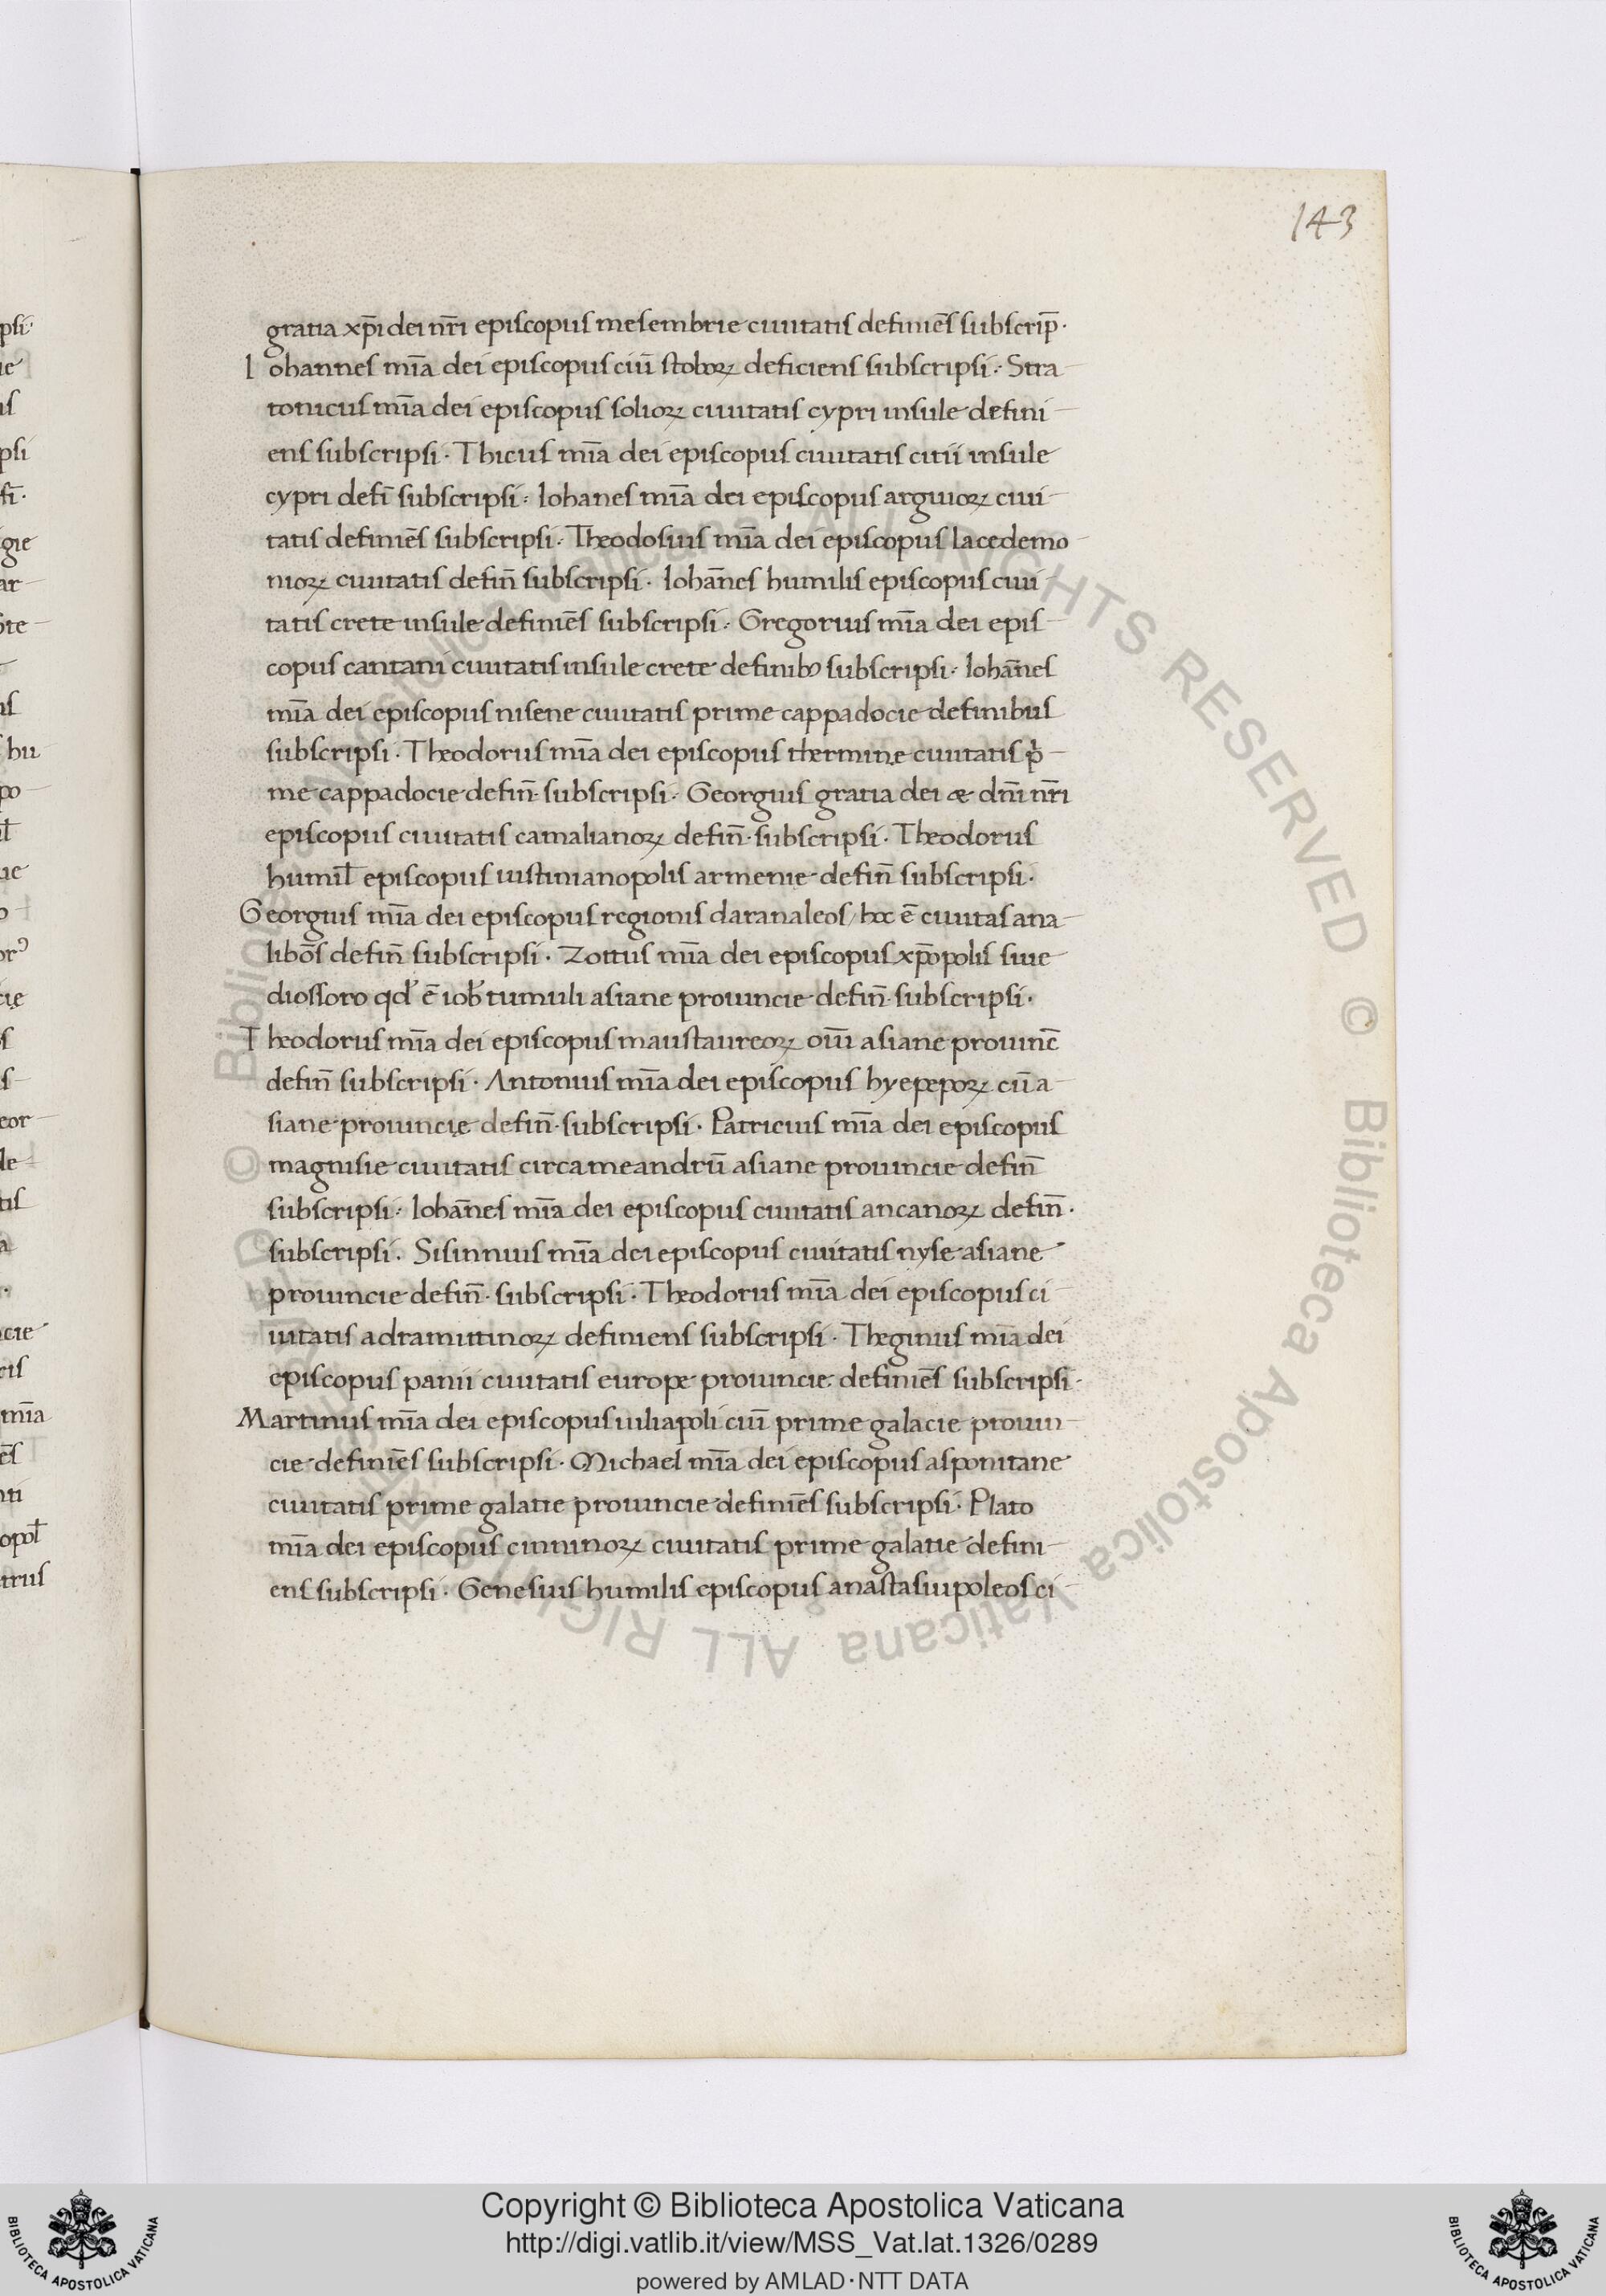 143
gratia xp̄i dei nr̄i episcopus mesembrie ciuitatis definiēs subscrip̄.
Iohannes mīa dei episcopus ciū stoboꝝ deficiens subscripsi. Stra
tonicus mīa dei episcopus solioꝝ ciuitatis cypri insule defini
ens subscripsi. Thicus mīa dei episcopus ciuitatis citii insule
cypri defī subscripsi. Iohanes mīa dei episcopus arguioꝝ ciui
tatis definiēs subscripsi. Theodosius mīa dei episcopus lacedemo
nioꝝ ciuitatis defin̄ subscripsi. Iohan̄es humilis episcopus ciui
tatis crete insule definiēs subscripsi. Gregorius mīa dei epis
copus cantani ciuitatis insule crete definibꝫ subscripsi. Iohan̄es
mīa dei episcopus nisene ciuitatis prime cappadocie definibus
subscripsi. Theodorus mīa dei episcopus thermine ciuitatis p̍
me cappadocie defin̄. subscripsi. Georgius gratia dei æ dn̄i nr̄i
episcopus ciuitatis camalianoꝝ defin̄. subscripsi. Theodorus
humil̄ episcopus iustinianopolis armenie defin̄ subscripsi.
Georgius mīa dei episcopus regionis daranaleos / hoc ē ciuitas ana
libōs defin̄ subscripsi. Zottus mīa dei episcopus xp̄opolis siue
diossoro qd̓ ē iob̓ tumuli asiane prouincie defin̄. subscripsi.
Theodorus mīa dei episcopus maustaureoꝝ oiū asiane prouinc̄
defin̄ subscripsi. Antonius mīa dei episcopus hyepepoꝝ cū a
siane prouincię defin̄. subscripsi. Patricius mīa dei episcopus
magnisie ciuitatis circa meandrū asiane prouincie defin̄
subscripsi. Iohan̄es mīa dei episcopus ciuitatis ancanoꝝ defin̄.
subscripsi. Sisinnius mīa dei episcopus ciuitatis nyse asiane
prouincie defin̄. subscripsi. Theodorus mīa dei episcopus ci
uitatis adramittinoꝝ definiens subscripsi. Theginus mīa dei
episcopus panii ciuitatis europe prouincie definiēs subscripsi.
Martinus mīa dei episcopus iuliapoli ciū prime galacie prouin
cie definiēs subscripsi. Michael mīa dei episcopus asponitane
ciuitatis prime galatie prouincie definiēs subscripsi. Plato
mīa dei episcopus cinninoꝝ ciuitatis prime galatie defini
ens subscripsi. Genesius humilis episcopus anastasiupoleos ci
Copyright © Biblioteca Apostolica Vaticana
http://digi.vatlib.it/view/MSS_Vat.lat.1326/0289
powered by AMLAD·NTT DATA